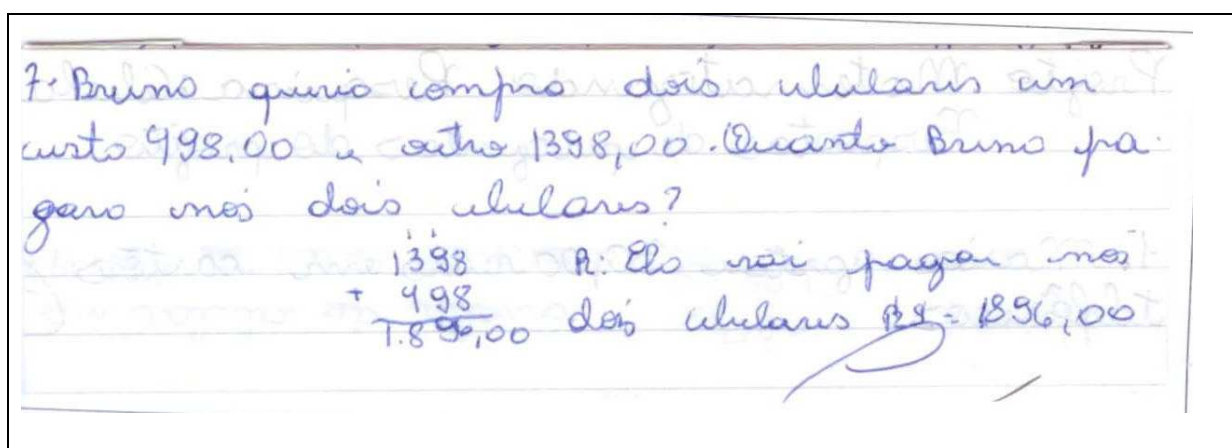 7. Bruno queria compra dois celulares um
custo 498,00 e outro 1398,00. Quanto Bruno pa-
gara nos dois celulares?
1398 R: Ele vai pagar nos
+ 498
1.896,00 dois celulares R$= 1896,00